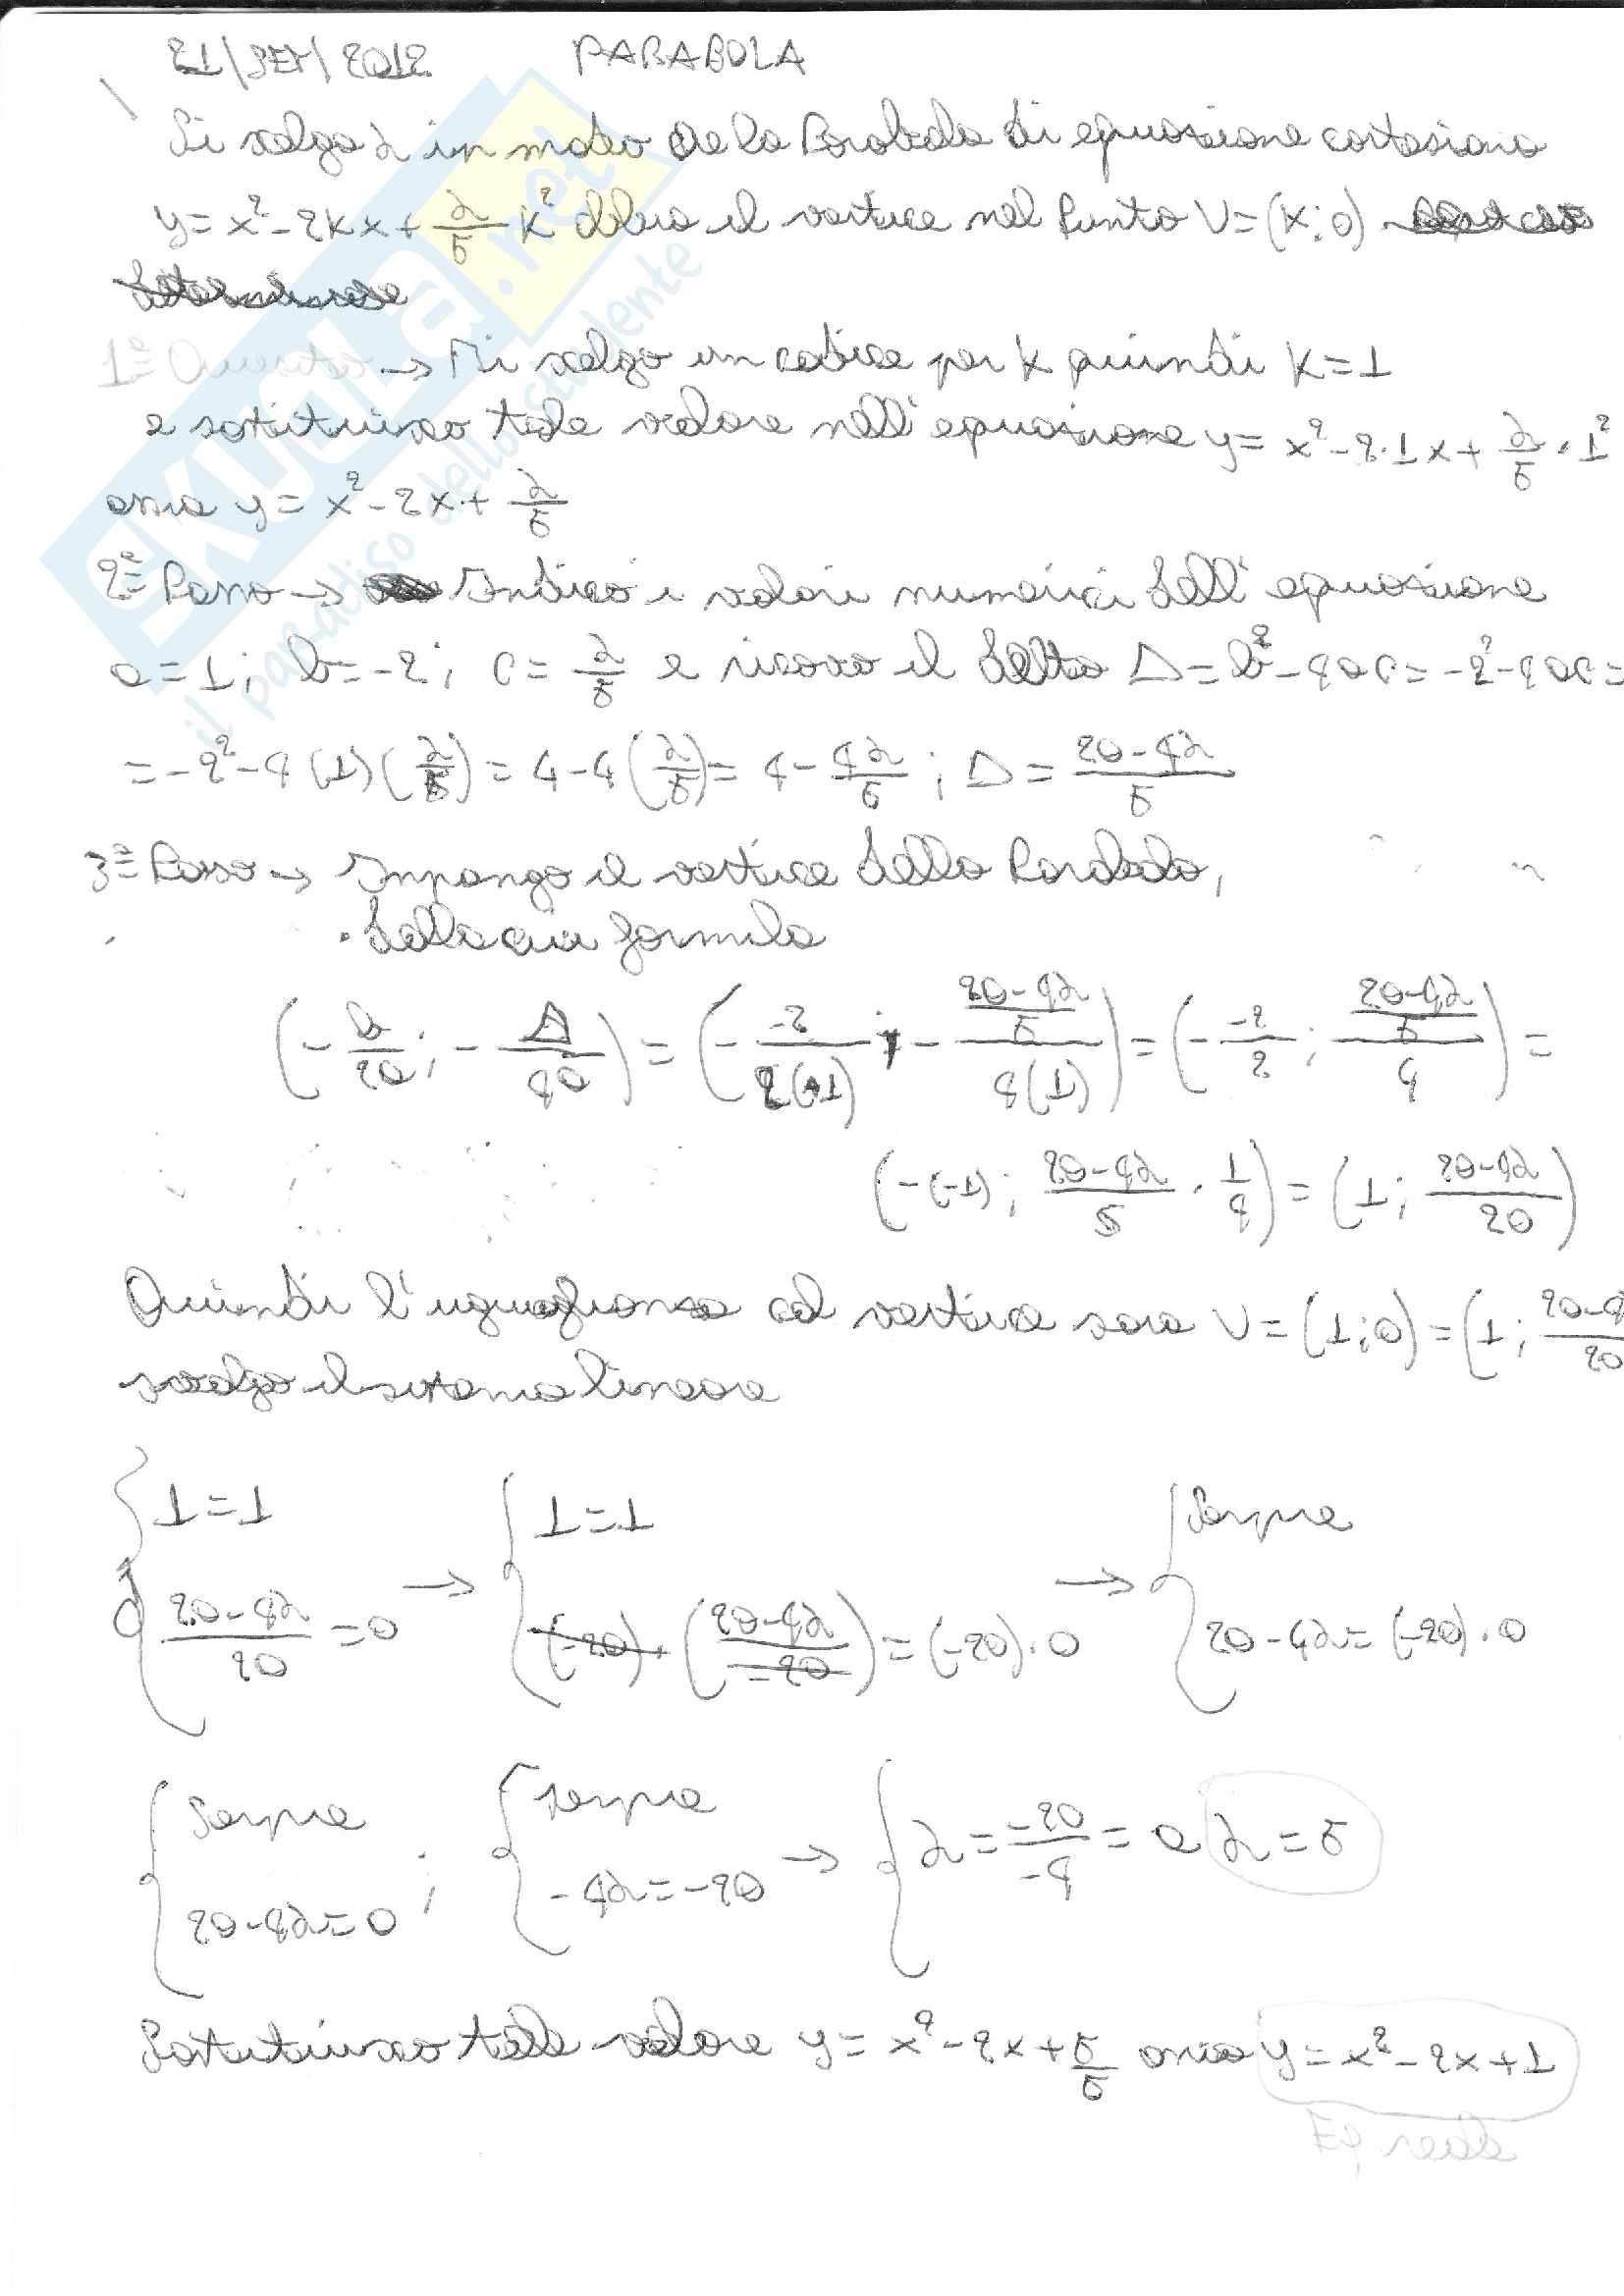 21/SET/2012 PARABOLA
Si scelga λ in modo che la Parabola di equazione cartesiana
y = x² - 2kx + λ/5 k² abbia il vertice nel Punto V = (k; 0)
1º Quesito → Mi scelgo un codice per k quindi k = 1
e sostituisco tale valore nell'equazione y = x² - 2·1x + λ/5 · 1²
ossia y = x² - 2x + λ/5
2º Passo → Indico i valori numerici dell'equazione
a = 1; b = -2; c = λ/5 e ricavo il delta Δ = b² - 4ac = -2² - 4ac =
= -2² - 4(1)(λ/5) = 4 - 4(λ/5) = 4 - 4λ/5; Δ = 20-4λ/5
3º Passo → Impongo il vertice della Parabola,
della cui formula
(-b/2a; -Δ/4a) = (- -2/2(1); - 20-4λ/5/4(1)) = (- -2/2; 20-4λ/5/4) =
(-(-1); 20-4λ/5 · 1/4) = (1; 20-4λ/20)
Quindi l'uguaglianza col vertice sarà V = (1; 0) = (1; 20-4/20
svolgo il sistema lineare
{ 1 = 1 { 1 = 1 { Sempre
{ 20-4λ/20 = 0 → { (-20) · (20-4λ/-20) = (-20) · 0 → { 20 - 4λ = (-20) · 0
{ Sempre ; { sempre
{ 20-4λ = 0 { -4λ = -20 → { λ = -20/-4 = a λ = 5
Sostituisco tale valore y = x² - 2x + 5/5 ossia y = x² - 2x + 1
Eq retta
SKUOLA.net
il paradiso dello studente